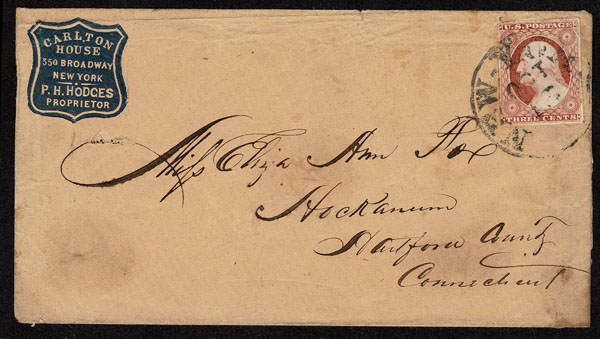 CARLTON
HOUSE
350 BROADWAY
NEW YORK
P. H. HODGES
PROPRIETOR
U.S. POSTAGE
THREE CENTS
NEW-Y
OCT
Miss Eliza Ann
Hockanum
Hartford County
Connecticut